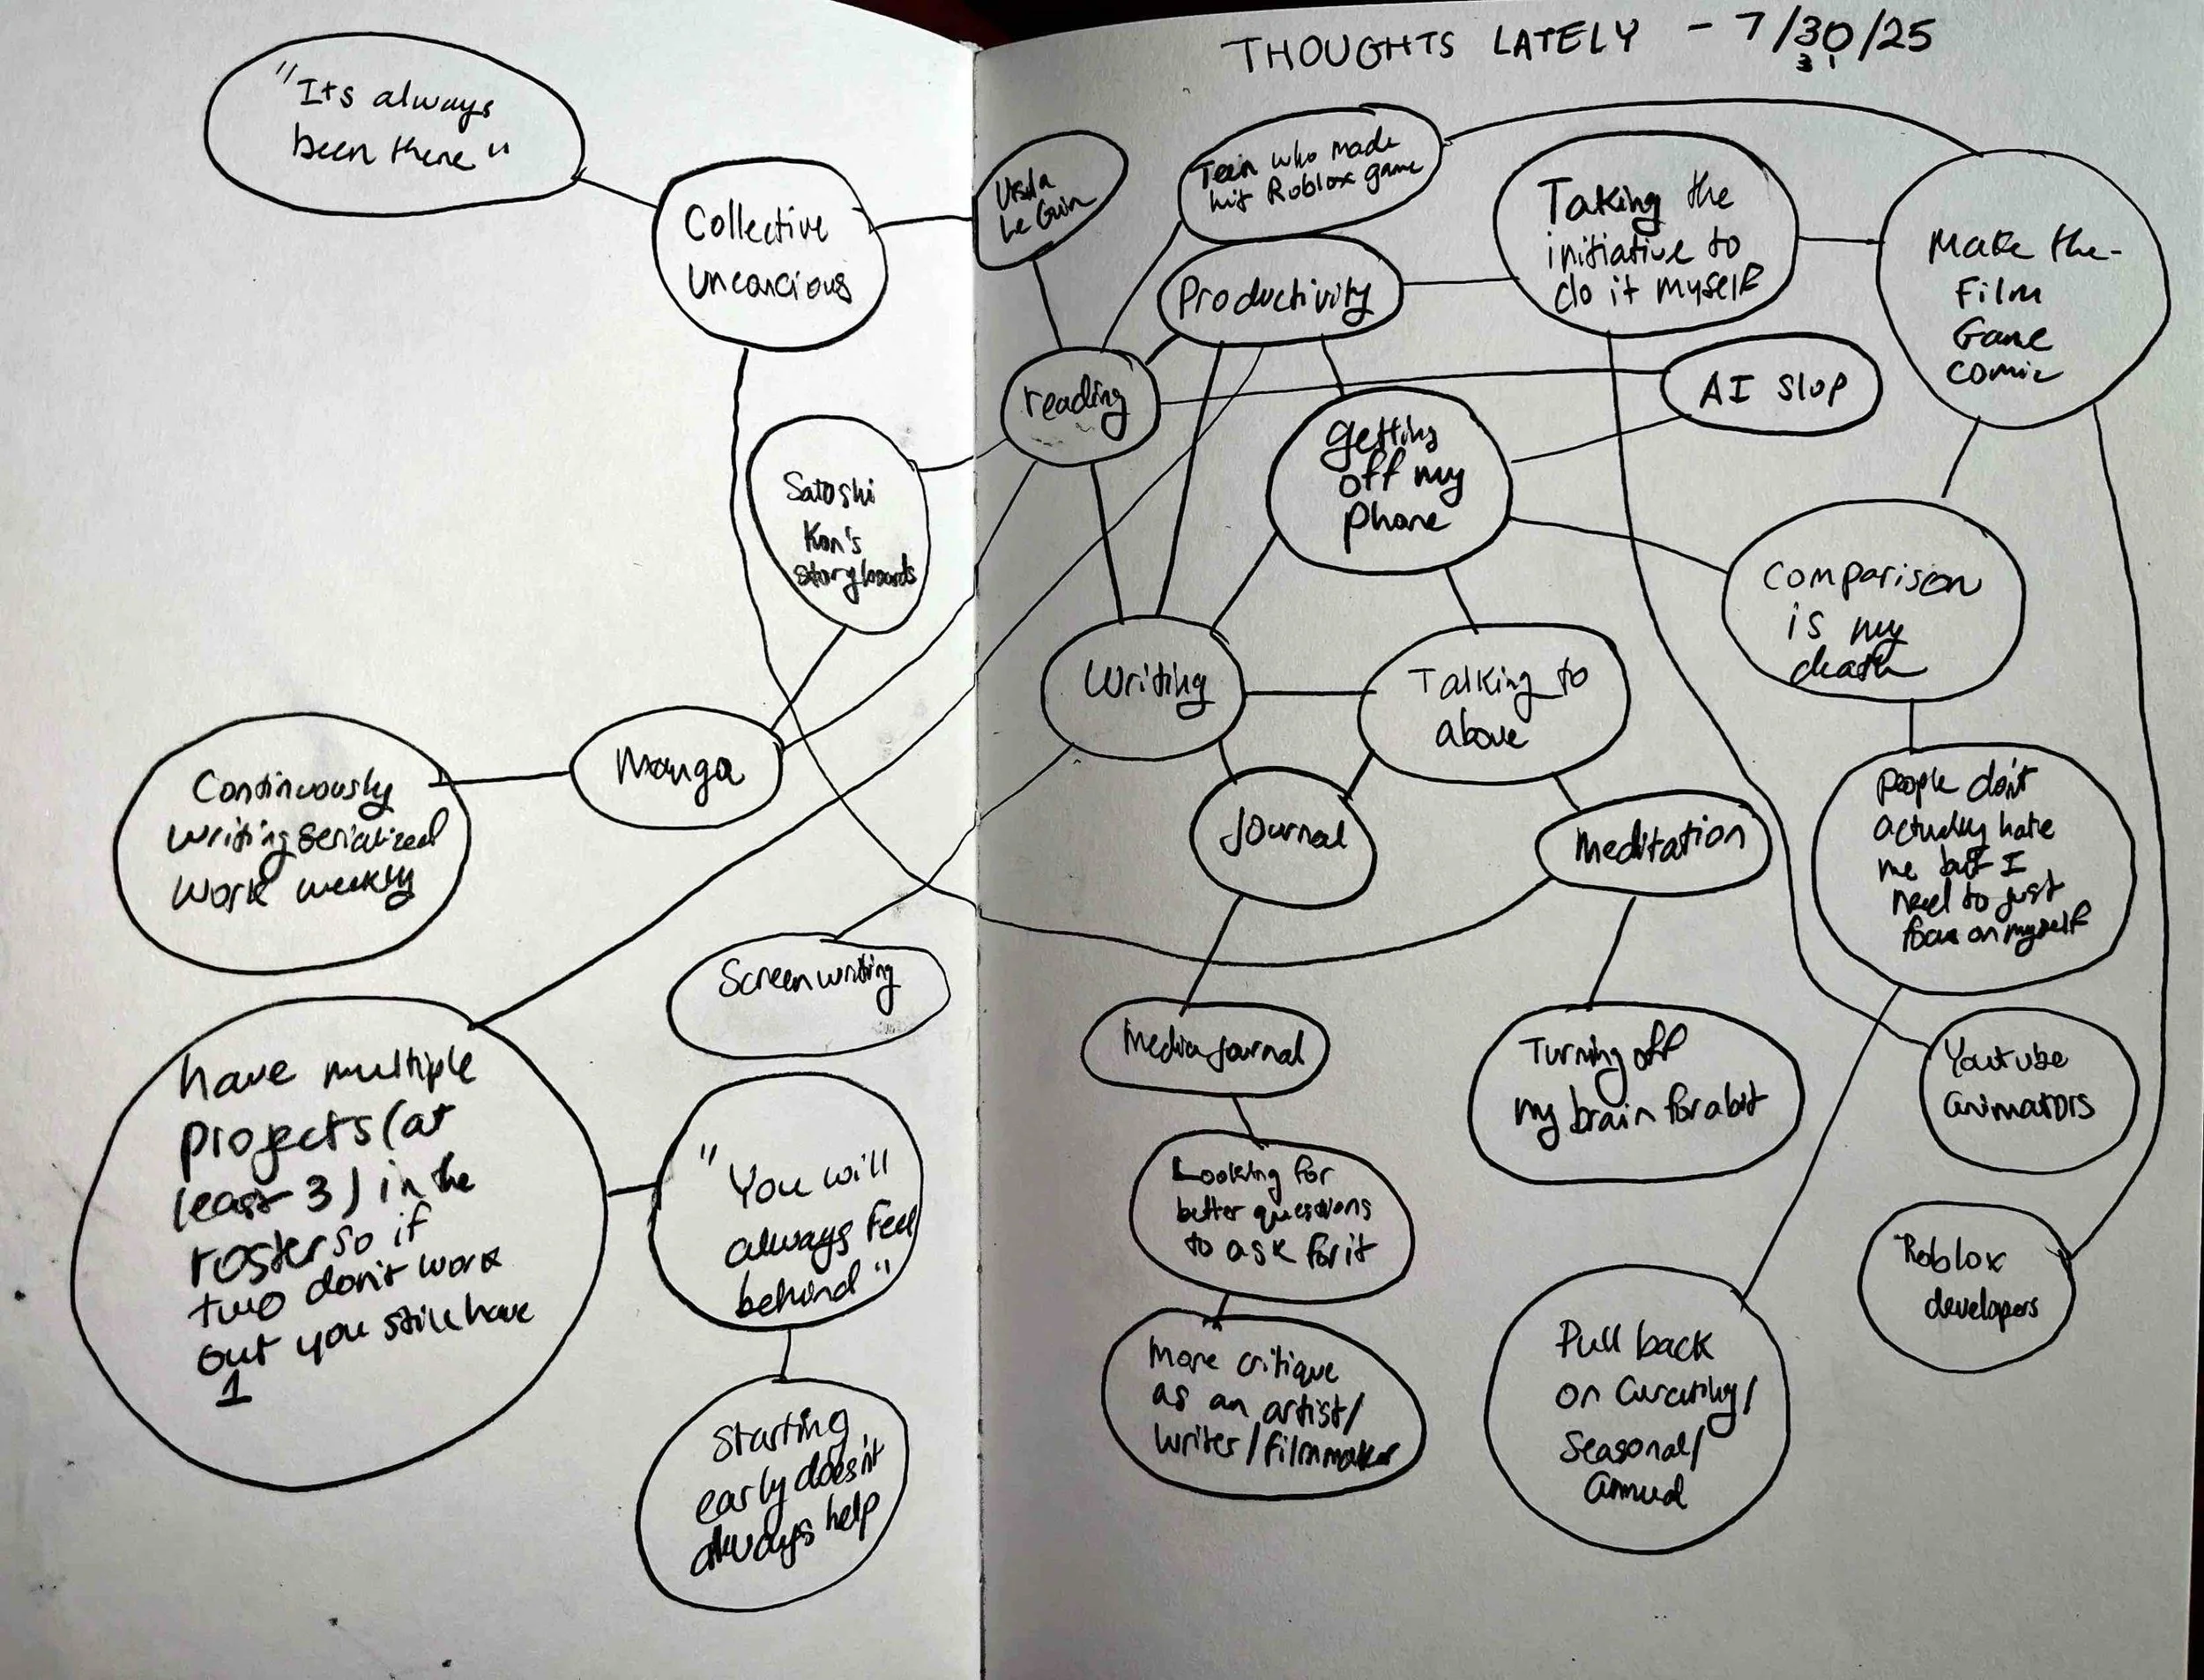 THOUGHTS LATELY - 7/30/25
31
"Its always
been there"
Collective
Unconcious
Usula
Le Guin
Teen who made
hit Roblox game
Productivity
Taking the
initiative to
do it myself
Make the-
Film
Game
Comic
reading
AI slop
getting
off my
phone
Satoshi
Kon's
storyboards
Comparison
is my
death
Writing
Talking to
above
Manga
Continuously
writing serialized
work weekly
Journal
Meditation
people don't
actually hate
me but I
need to just
focus on myself
Screenwriting
Media Journal
Turning off
my brain for a bit
Youtube
animators
have multiple
projects (at
least 3) in the
roster so if
two don't work
out you still have
1
"You will
always feel
behind"
Looking for
better questions
to ask for it
Roblox
developers
More critique
as an artist/
writer/filmmaker
Pull back
on Curating/
Seasonal/
annual
Starting
early doesn't
always help